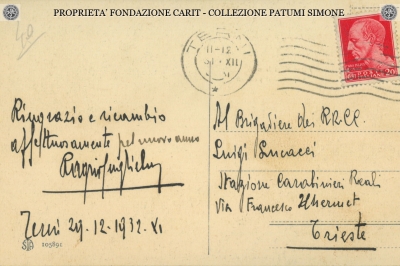 PROPRIETA' FONDAZIONE CARIT - COLLEZIONE PATUMI SIMONE
TERNI
11-12
31 XII
Ringrazio e ricambio
affettuosamente pel nuovo anno
Terni 29-12-1932-XI
20589c
Al Brigadiere dei RR.CC.
Luigi Lucacci
Stazione Carabinieri Reali
Via Francesco Hermet
Trieste